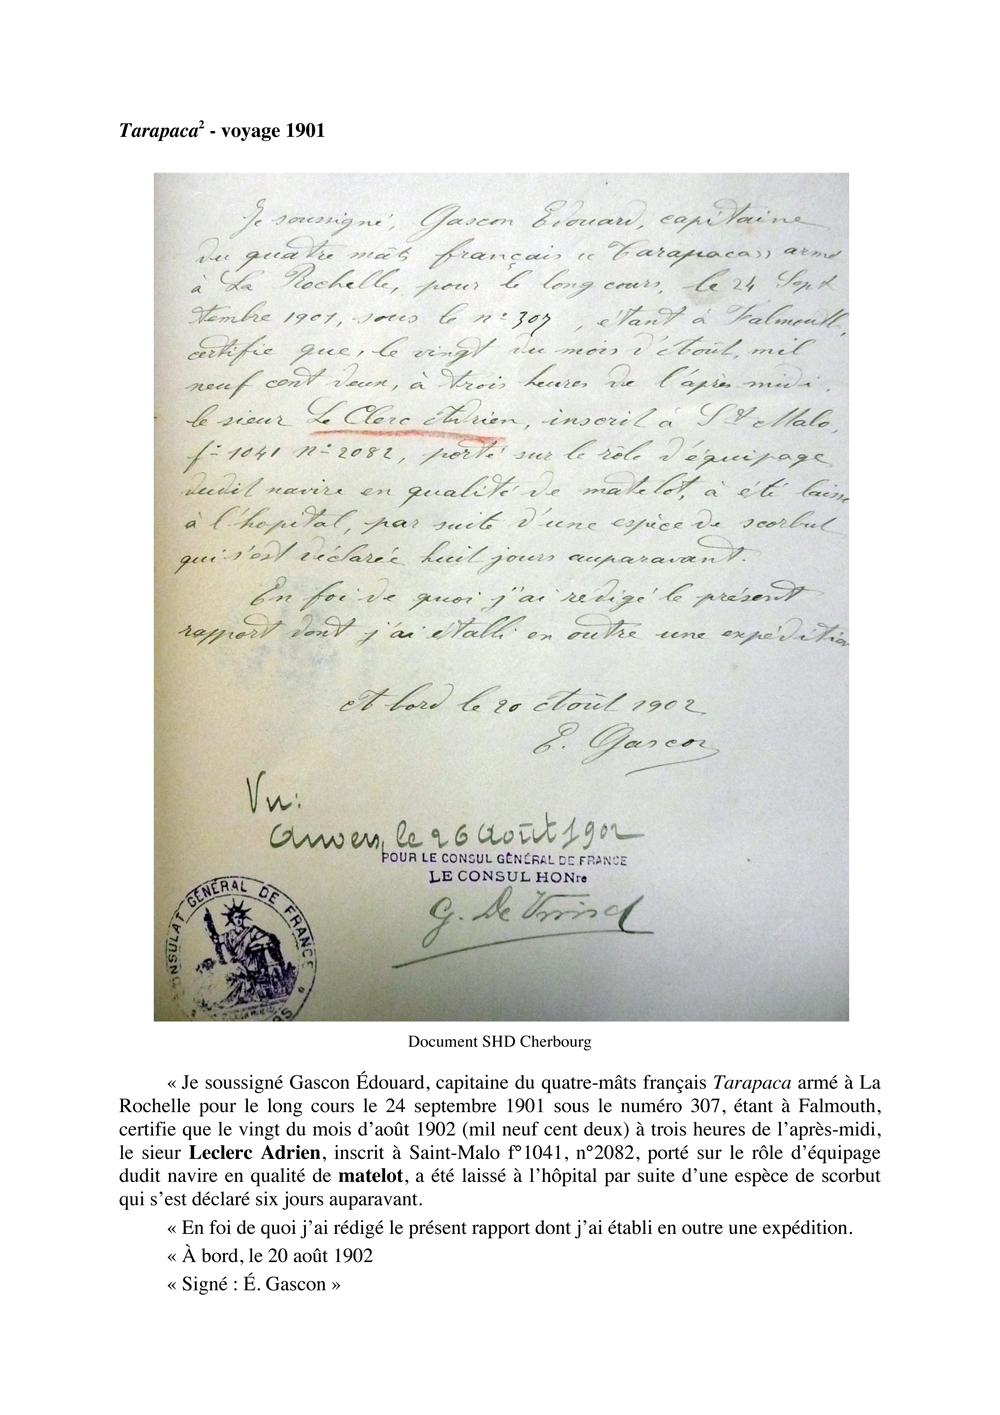 Tarapaca² - voyage 1901
Je soussigné, Gascon Edouard, capitaine
du quatre mâts français « Tarapaca » armé
à La Rochelle, pour le long cours, le 24 Sept
tembre 1901, sous le n° 307, étant à Falmouth,
certifie que, le vingt du mois d'Août, mil
neuf cent deux, à trois heures de l'après midi,
le sieur Le Clerc Adrien, inscrit à St Malo,
f° 1041 n° 2082, porté sur le rôle d'équipage
dudit navire en qualité de matelot, à été laissé
à l'hopital, par suite d'une espèce de scorbut
qui s'est déclarée huit jours auparavant.
En foi de quoi j'ai redigé le présent
rapport dont j'ai établi en outre une expédition
A bord le 20 Août 1902
E. Gascon
Vu:
Anvers, le 26 Août 1902
POUR LE CONSUL GÉNÉRAL DE FRANCE
LE CONSUL HONre
G. De
CONSULAT GÉNÉRAL DE FRANCE
Document SHD Cherbourg
« Je soussigné Gascon Édouard, capitaine du quatre-mâts français Tarapaca armé à La
Rochelle pour le long cours le 24 septembre 1901 sous le numéro 307, étant à Falmouth,
certifie que le vingt du mois d'août 1902 (mil neuf cent deux) à trois heures de l'après-midi,
le sieur Leclerc Adrien, inscrit à Saint-Malo f°1041, n°2082, porté sur le rôle d'équipage
dudit navire en qualité de matelot, a été laissé à l'hôpital par suite d'une espèce de scorbut
qui s'est déclaré six jours auparavant.
« En foi de quoi j'ai rédigé le présent rapport dont j'ai établi en outre une expédition.
« À bord, le 20 août 1902
« Signé : É. Gascon »